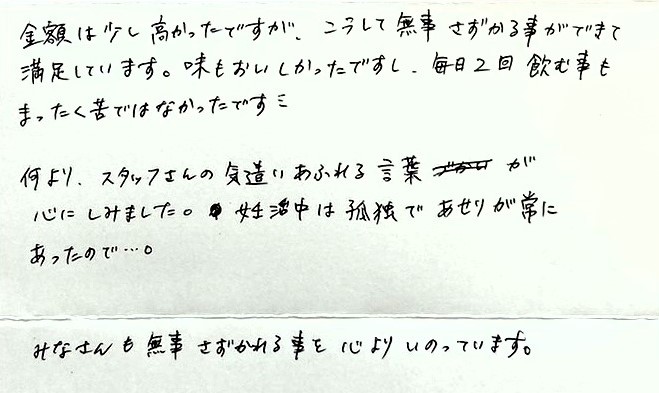 金額は少し高かったですが、こうして無事さずかる事ができて
満足しています。味もおいしかったですし、毎日2回飲む事も
まったく苦ではなかったですミ
何より、スタッフさんの気遣いあふれる言葉づかいが
心にしみました。妊活中は孤独であせりが常に
あったので…。
みなさんも無事さずかれる事を心よりいのっています。